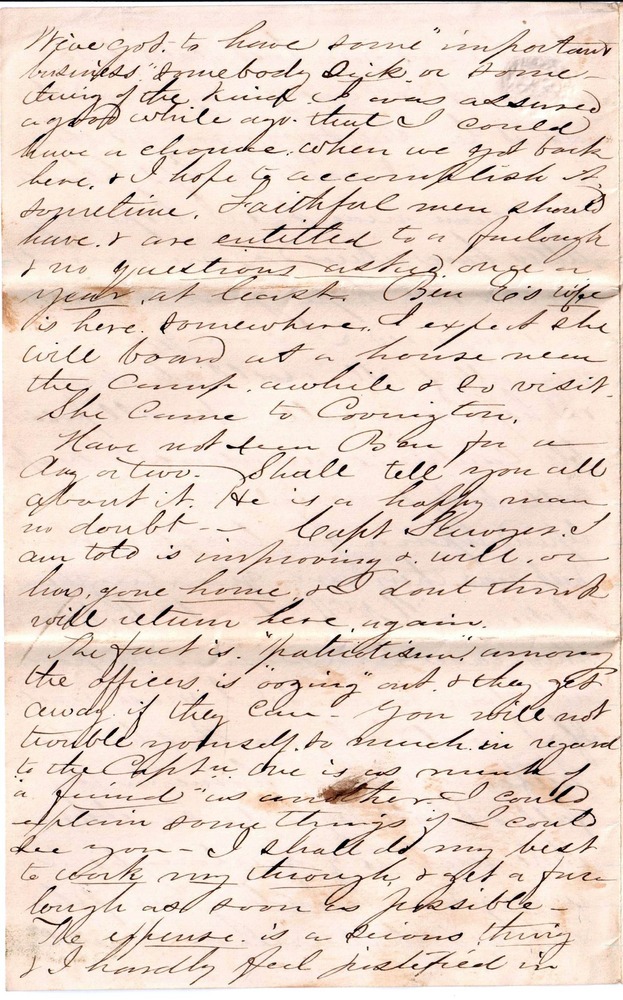 We've got to have some "important
business" somebody sick or some-
thing of the kind. I was assured
a good while ago that I could
have a chance when we got back
here, & I hope to accomplish it
sometime. Faithful men should
have & are entitled to a furlough
& no questions asked once a
year, at least. Ben E's wife
is here somewhere. I expect she
will board at a house near
the Camp awhile & so visit.
She came to Covington.
Have not seen Ben for a
day or two. Shall tell you all
about it. He is a happy man
no doubt -- Capt Sawyer. I
am told is improving & will, or
has, gone home, & I dont think
will return here again.
The fact is "patriotism" among
the officers is "oozing" out & they get
away if they can - You will not
trouble yourself so much in regard
to the Captn. One is as much of
a "friend" as another. I could
explain some things if I could
see you - I shall do my best
to work my through, & get a fur-
lough as soon as possible -
The expense is a serious thing
& I hardly feel justified in